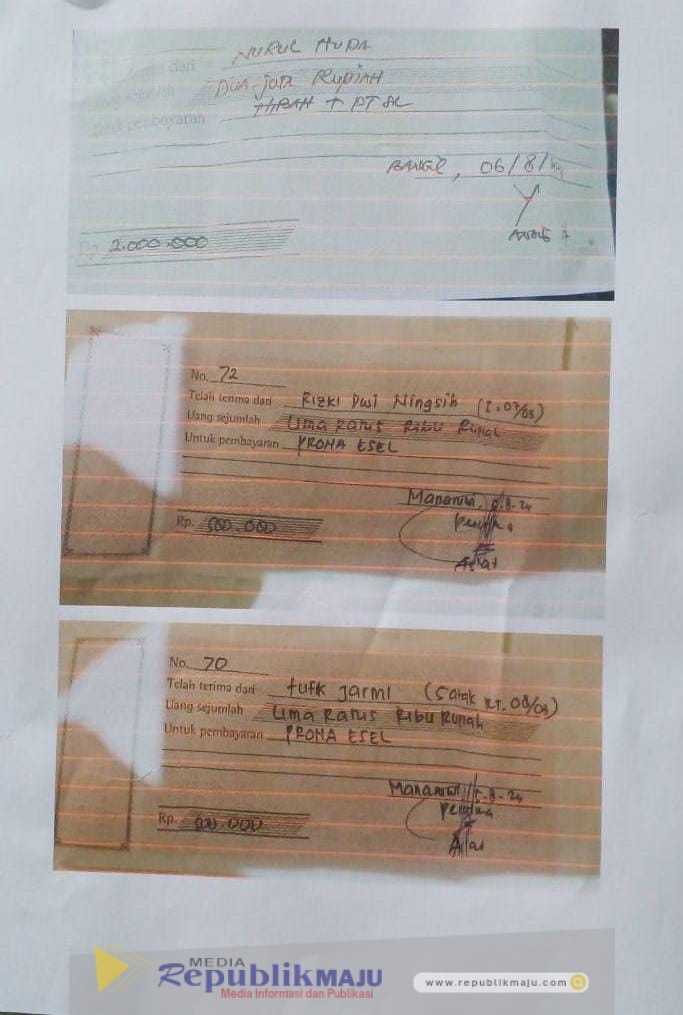 NURUL HUDA
Terima dari
Uang sejumlah DUA JUTA RUPIAH
Untuk pembayaran HIBAH + PTSL
BANGIL, 06/8/
Rp. 2.000.000
No. 72
Telah terima dari Rizki Dwi Ningsih
Uang sejumlah Lima Ratus Ribu Rupiah
Untuk pembayaran PRONA ESEL
Manaruwi, 8-24
Rp. 500.000
No. 70
Telah terima dari tufik jarmi (Satak RT. 08/03)
Uang sejumlah Lima Ratus Ribu Rupiah
Untuk pembayaran PRONA ESEL
Manaruwi 5-8-24
Rp. 500.000
MEDIA
RepublikMAJU
Media Informasi dan Publikasi
www.republikmaju.com